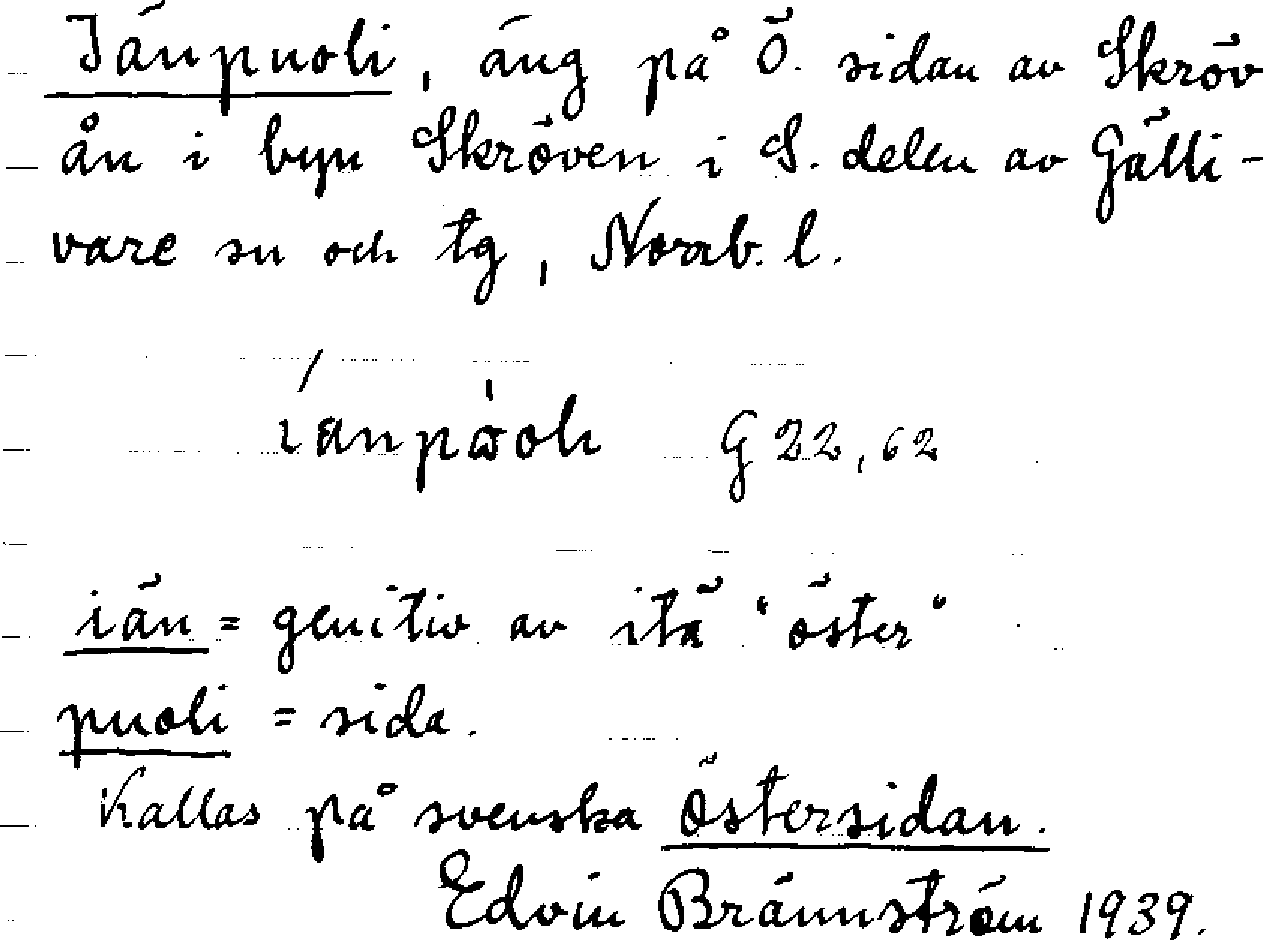 Iänpuoli, äng på Ö. sidan av Skröv
ån i byn Skröven i S. delen av Gälli-
vare sn och tg, Norrb. l.
G 22,62
iän = genitiv av itä "öster"
puoli = sida.
Kallas på svenska Östersidan.
Edvin Brännström 1939.